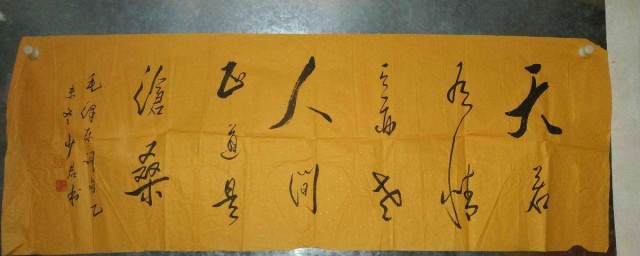 天若
有情
天亦老
人间
正道是
沧桑
毛泽东词句乙
未冬少君书